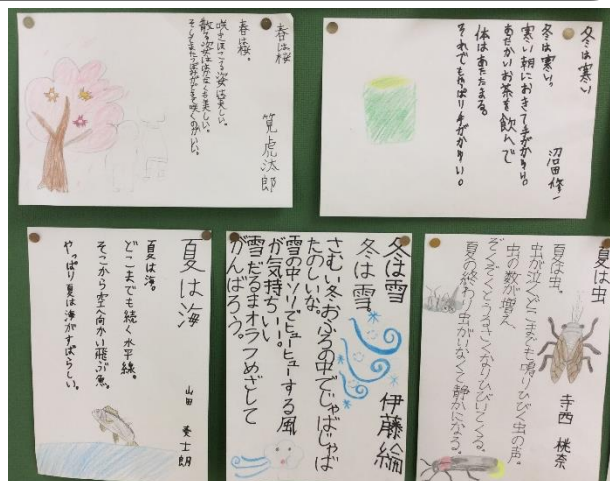 春は桜
筧虎汰郎
春は桜。
咲きほこる姿は美しい。
散る姿ははかなくも美しい。
そしてまたつぼみができて咲くのがいい。
冬は寒い
沼田修一
冬は寒い。
寒い朝におきて手がかゆい。
あたかいお茶を飲んで
体はあたたまる。
それでもやっぱり手がかゆい。
夏は海
山田 麦士朗
夏は海。
どこまでも続く水平線。
そこから空へ向かい飛ぶ魚。
やっぱり夏は海がすばらしい。
冬は雪
伊藤綸
冬は雪
さむい冬おふろの中でじゃばじゃば
たのしいな。
雪の中ソリでビューヒューする風
が気持ちいいー。
雪だるまオラフめざして
がんばろう。
夏は虫
寺西 桃奈
夏は虫。
虫が泣くどこまでも鳴りひびく虫の声。
虫の数が増え
ぞくぞくとうるさくかなりひびいてくる。
夏の終わり虫がいなくて静かになる。